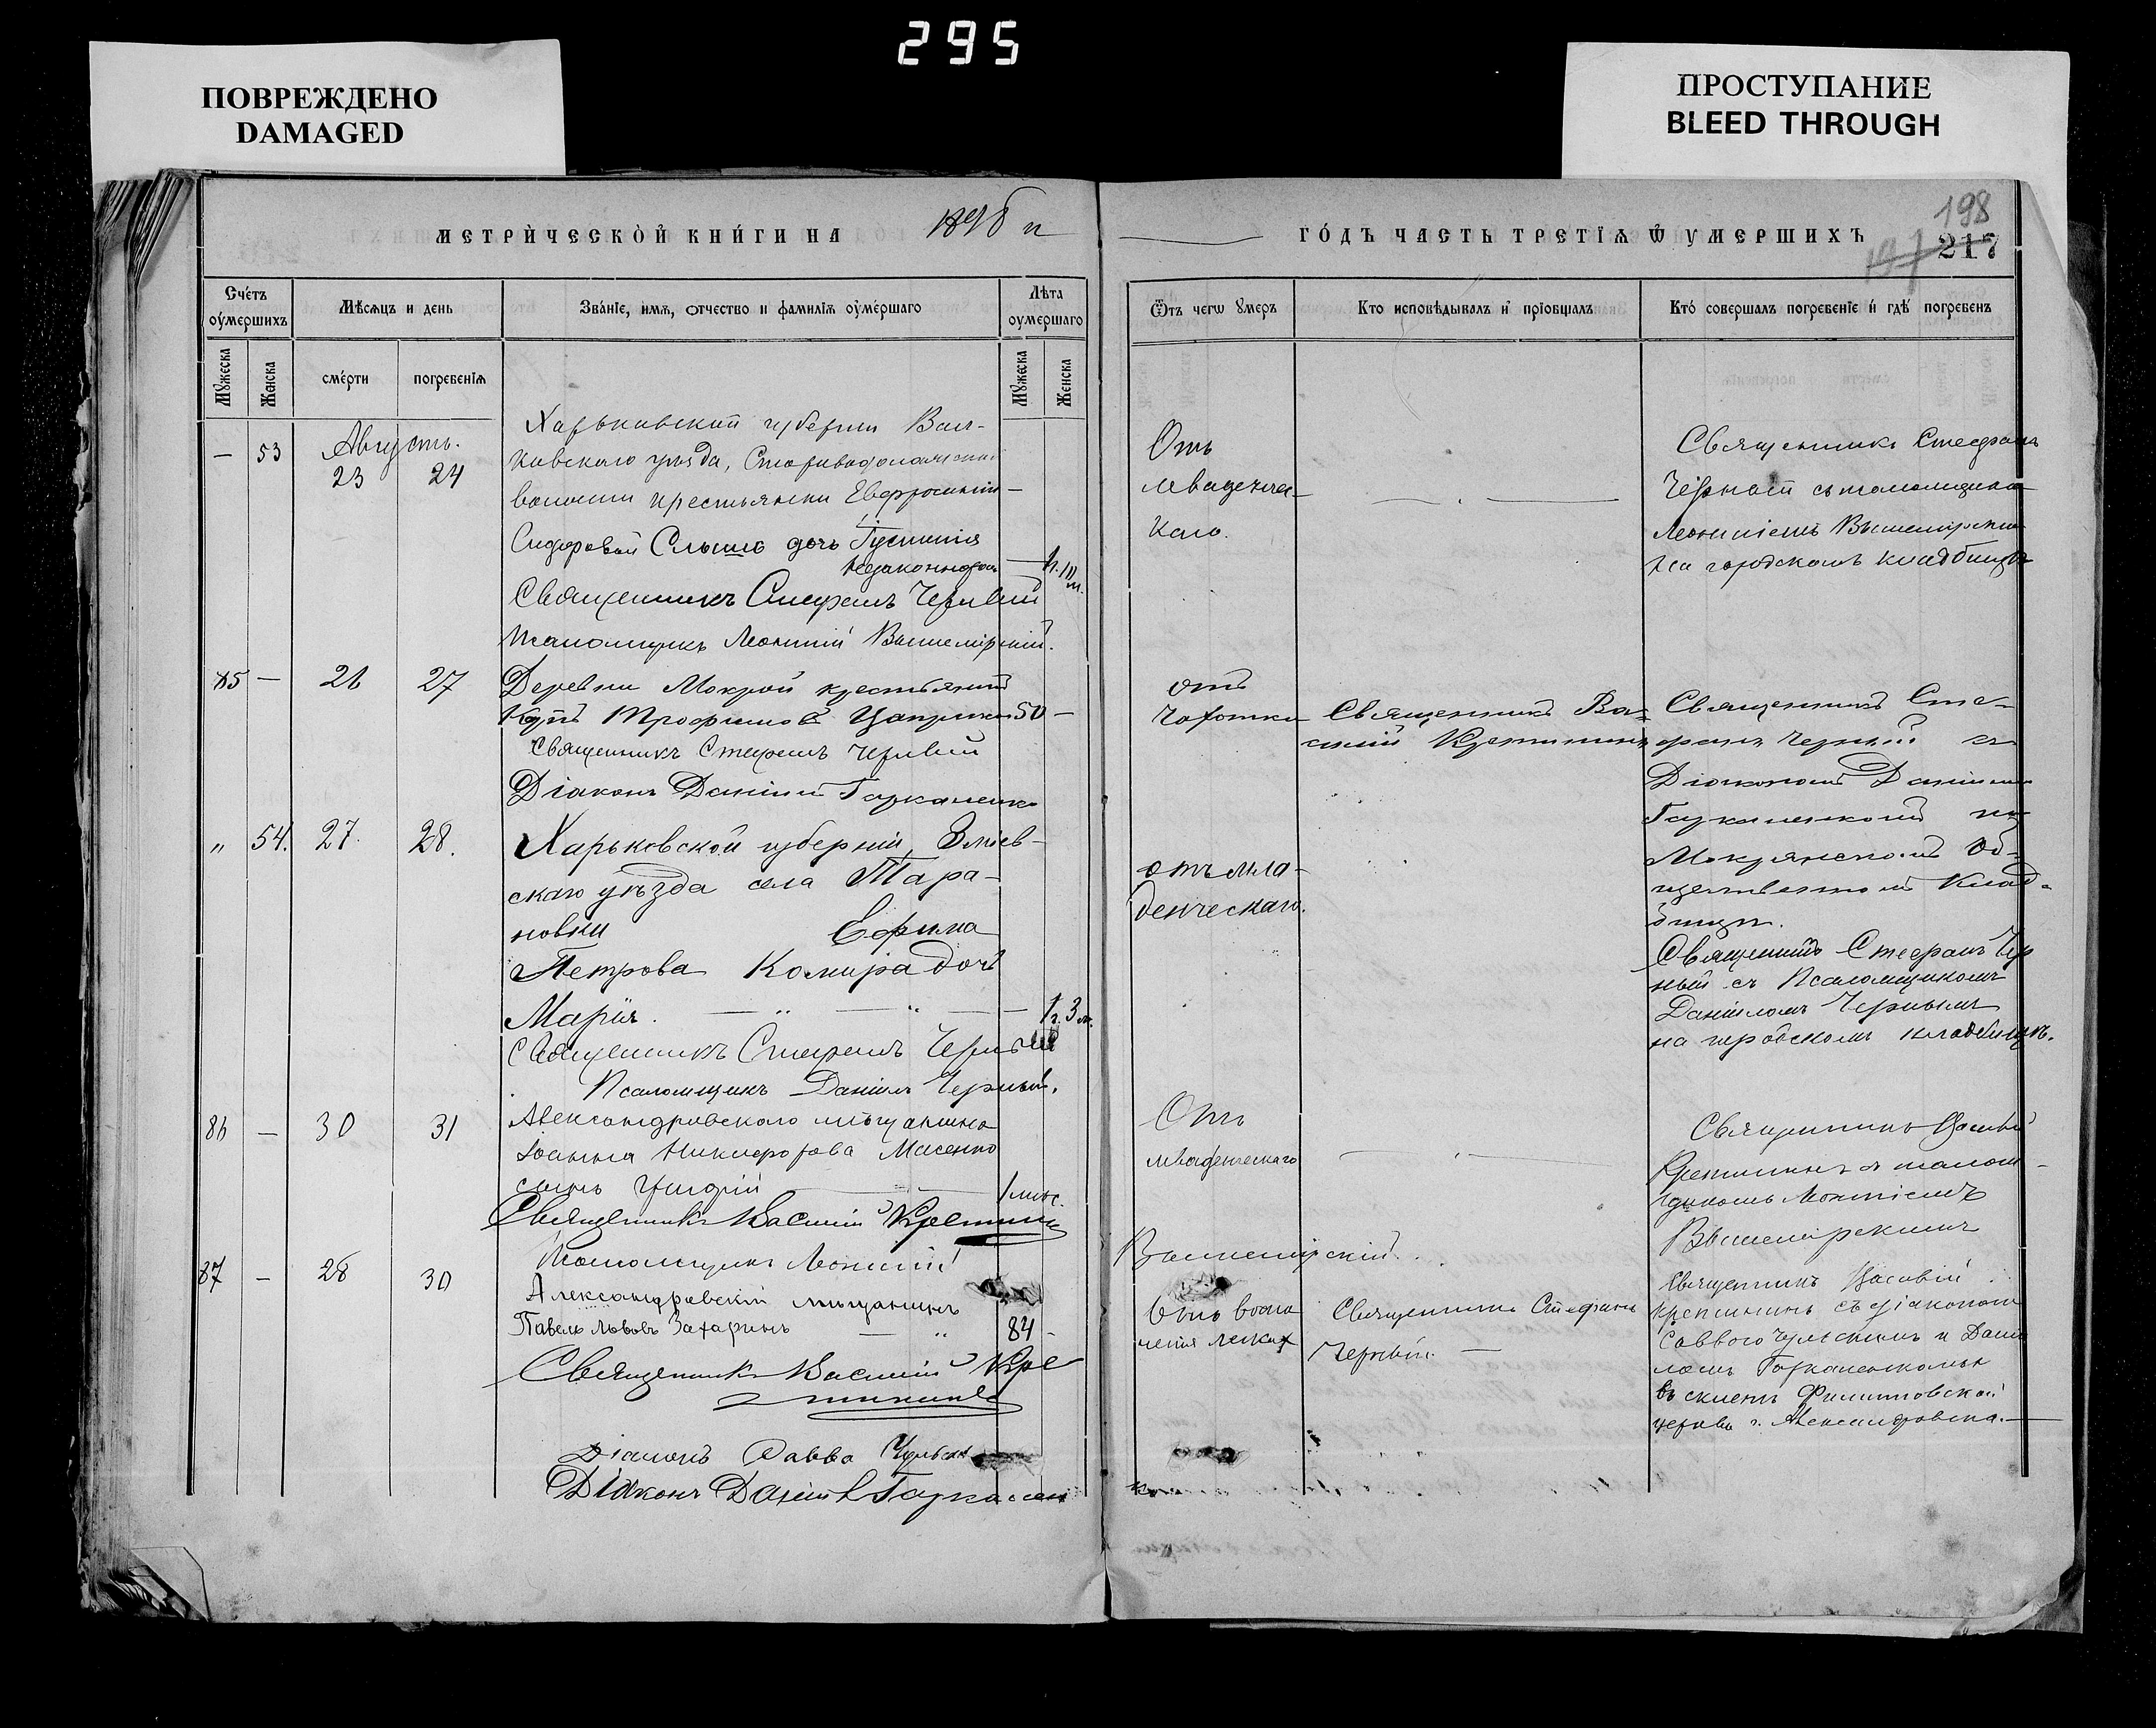 295
ПОВРЕЖДЕНО
DAMAGED
ПРОСТУПАНИЕ
BLEED THROUGH
МЕТРИ́ЧЕСКОЙ КНИ́ГИ НА 1896 й
ГО́ДЪ ЧАСТЬ ТРЕТІѦ Ѿ УМЕРШИХЪ
198
197
217
Сче́тъ оу҆ме́ршихъ
Мѣсѧцъ и день
Зва́нїе, имѧ, отчество и фамилїѧ оу҆ме́ршаго
Лѣта оумершаго
Ѿтъ чегѡ ᲂумеръ
Кто исповѣдывалъ и҆ прїобщалъ
Кто́ совершалъ погребенїе и҆ гдѣ́ погребенъ
Мꙋжеска
Женска
сме́рти
погребенїѧ
Мꙋжеска
Женска
— 53
Августъ.
23 24
Харьковской губерніи Вал-
ковскаго уѣзда,
волости крестьянки Евфросиніи
Сидоровой дочь
незаконнорож
Священникъ Стефанъ Черный
Псаломщикъ Леонтій Вышемірскій.
Отъ
младенчес-
каго.
Священникъ Стефанъ
Черный съ псаломщикомъ
Леонтіемъ Вышемірским
На городскомъ кладбищѣ
85 — 26 27
Деревни Мокрой крестьянинъ
Трофимовъ 50 —
Священникъ Стефанъ Черный
Діаконъ Даніилъ Гаркаленко
отъ
чахотки
Священникъ Ва-
силій Крещининъ
Священникъ Сте-
фанъ Черный съ
Діакономъ Даніиломъ
на
Мокрянскомъ Об-
щественномъ Клад-
бищѣ.
„ 54. 27. 28.
Харьковской губерніи, Зміев-
скаго уѣзда села Тара-
новки Ефима
Петрова Комира дочь
Марія. — „ — „ — 1г. 3 м.
Священникъ Стефанъ Черный
Псаломщикъ Даніилъ Черный.
отъ мла-
денческаго.
Священникъ Стефанъ Чер
ный съ Псаломщикомъ
Даніиломъ Чернымъ
на городскомъ кладбищѣ.
86 — 30 31
Александровскаго мѣщанина
Іоанна Никифорова Масенко
сынъ — 1 мѣс.
Священникъ Василій Крещининъ
Псаломщикъ Леонтій
Вышемірскій.
Отъ
младенческаго
Священникъ Василій
Крещининъ съ псалом-
щикомъ Леонтіемъ
Вышемірскимъ
87 — 28 30
Александровскій мѣщанинъ
Павелъ Львовъ Захаринъ — „ 84 -
Священникъ Василій Кре
щининъ
Діаконъ Савва
Діаконъ Даніилъ Гаркален
ко
Отъ воспа
ленія легких
Священникъ Стефанъ
Черный. —
Священникъ Василій
Крещининъ съ діакономъ
Саввою и Дани
ломъ Гаркаленкомъ
въ склепѣ Филипповской
церкви г. Александровска. —